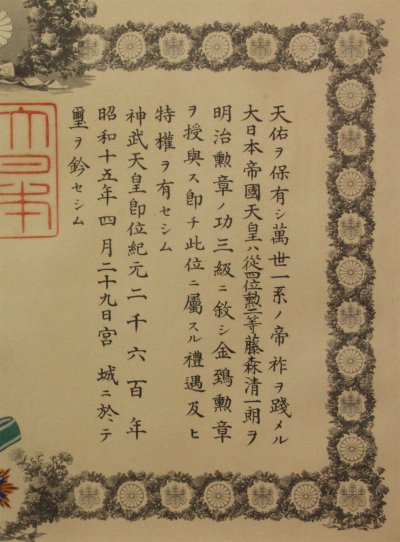 天佑ヲ保有シ萬世一系ノ帝祚ヲ踐メル
大日本帝國天皇ハ從四位勲二等藤森清一朗ヲ
明治勲章ノ功三級ニ敘シ金鵄勲章
ヲ授與ス即チ此位ニ屬スル禮遇及ヒ
特權ヲ有セシム
神武天皇即位紀元二千六百年
昭和十五年四月二十九日宮城ニ於テ
璽ヲ鈐セシム